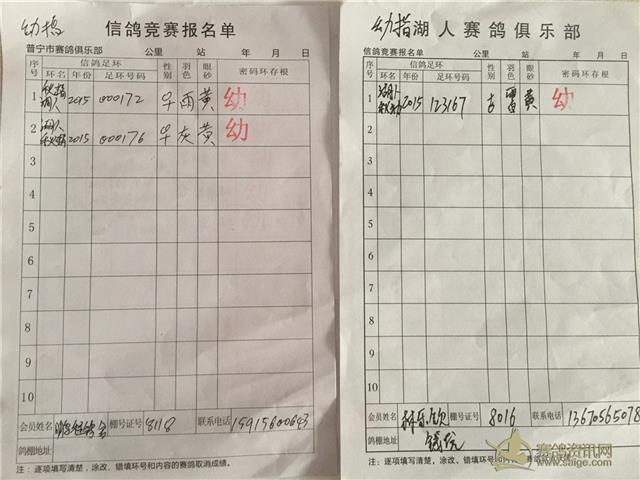 幼指
信鸽竞赛报名单
普宁市赛鸽俱乐部 公里 站 年 月 日
序号 信鸽足环 性别 羽色 眼砂 密码环存根
环名 年份 足环号码
1 2015 000172 雨 黄 幼
2 湖人 2015 000176 灰 黄 幼
3
4
5
6
7
8
9
10
会员姓名 棚号证号 8118 联系电话 15915600643
鸽棚地址
注：逐项填写清楚，涂改，错填环号和内容的赛鸽取消成绩。
幼指 湖人赛鸽俱乐部
信鸽竞赛报名单 公里 站 年 月 日
序号 信鸽足环 性别 羽色 眼砂 密码环存根
环名 年份 足环号码
1 湖人 2015 123167 黄 幼
2
3
4
5
6
7
8
9
10
会员姓名 棚号证号 8016 联系电话 13670565078
鸽棚地址
注：逐项填写清楚、涂改、错填环号和内容的赛鸽
赛鸽资讯网
www.saige.com